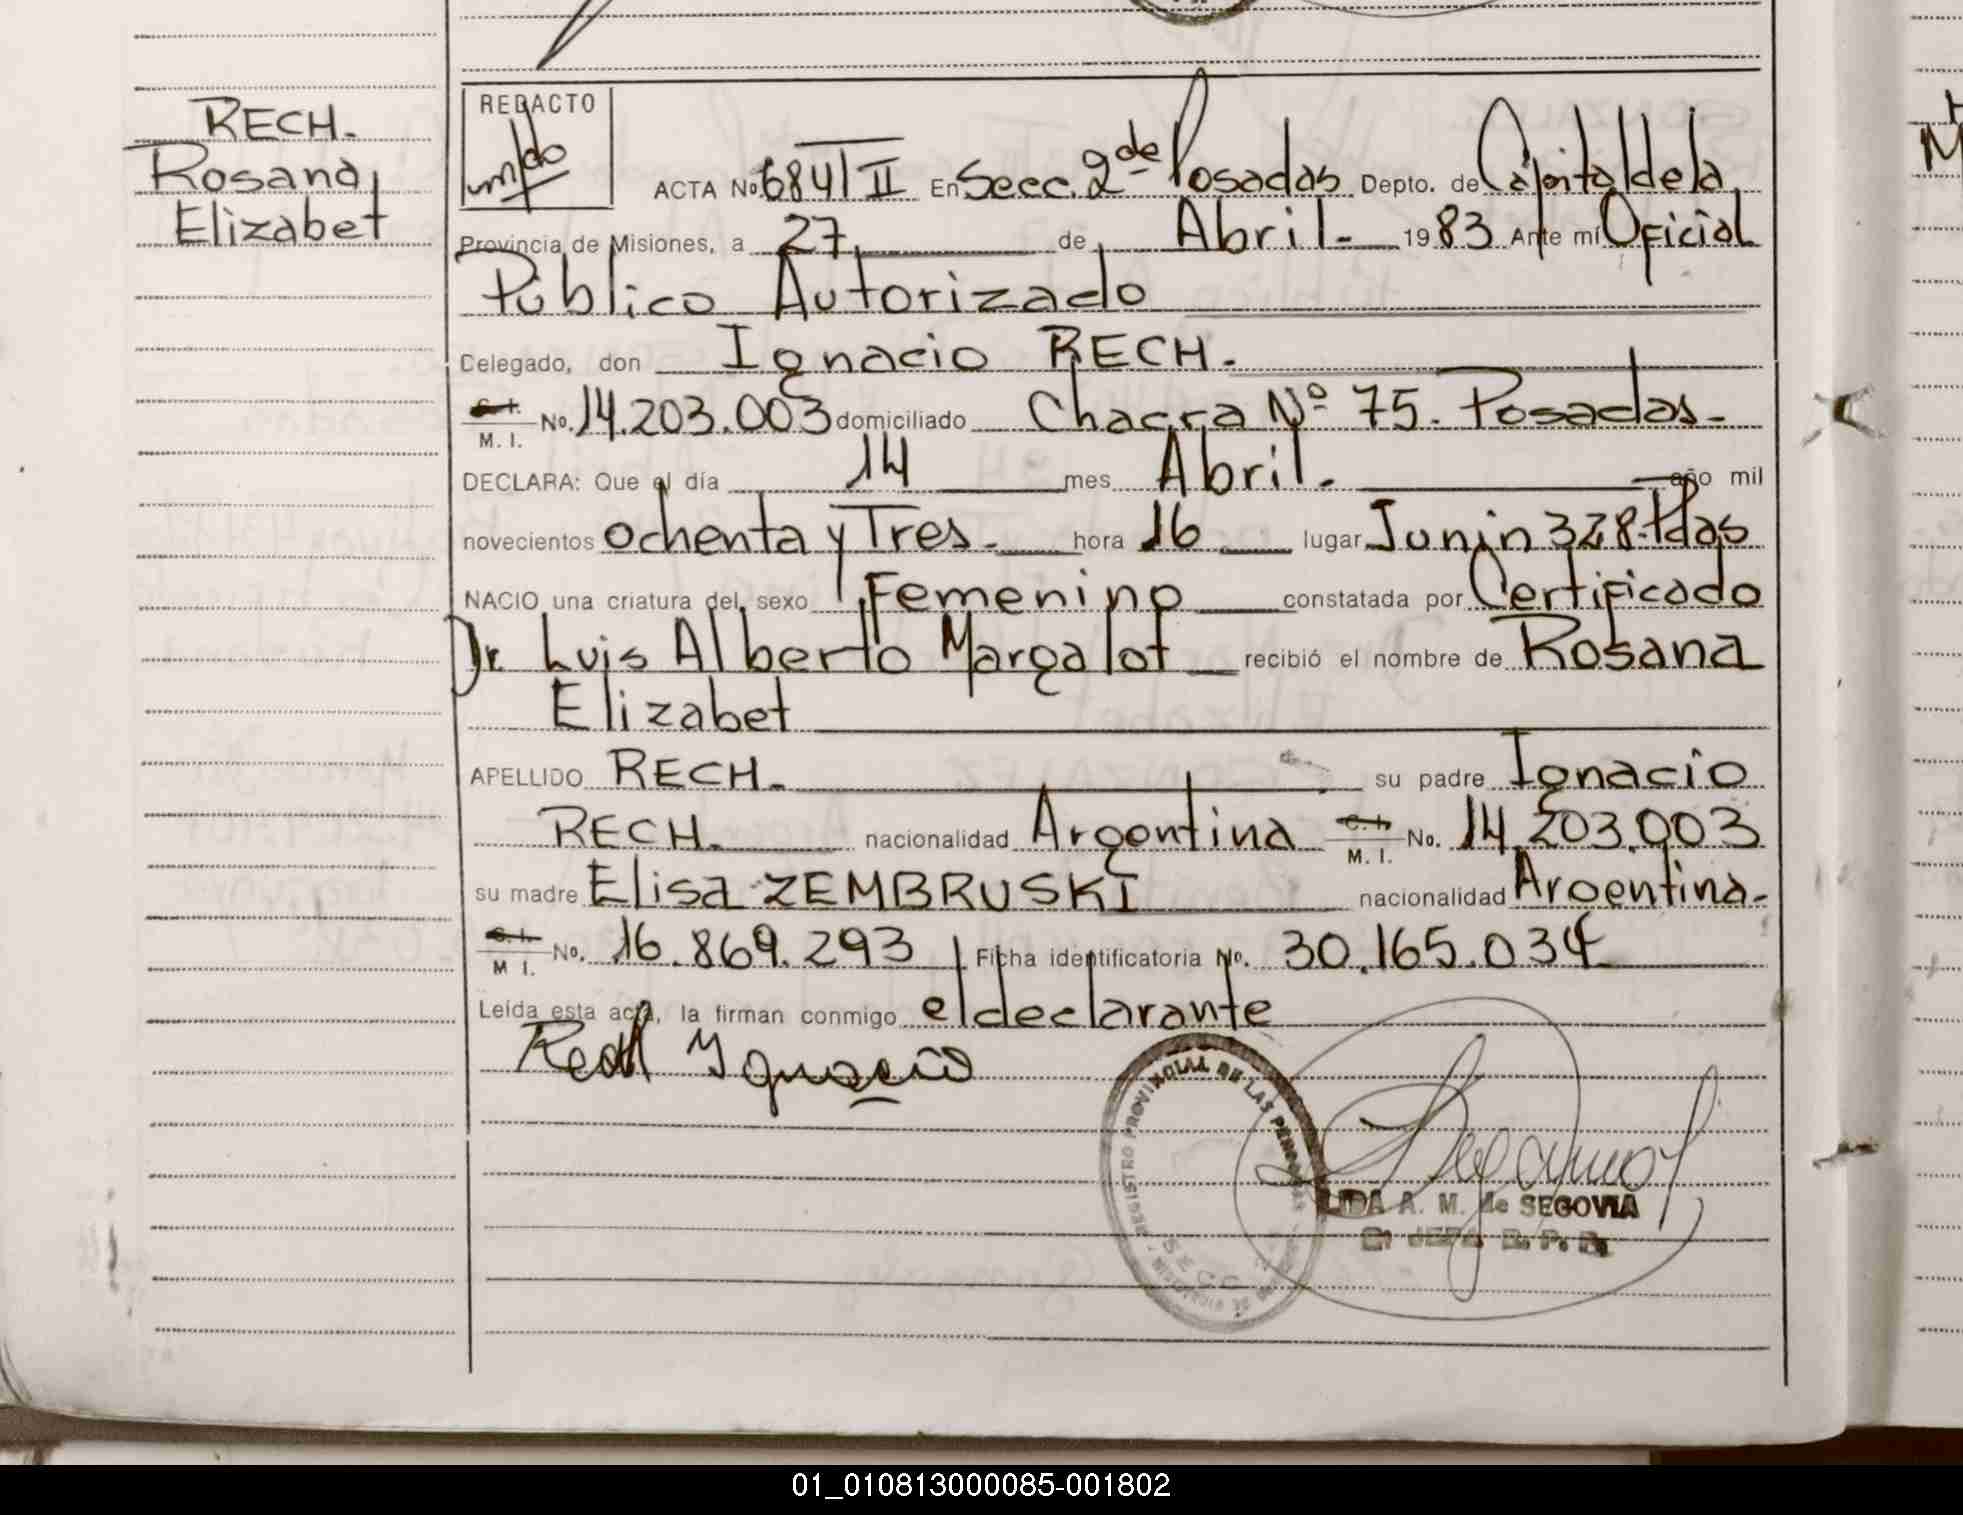 RECH.
Rosana
Elizabet
REDACTO
ACTA No 684/II En Secc. 2de Posadas Depto. de Capital de la
Provincia de Misiones, a 27 de Abril.- 1983 Ante mí Oficial
Público Autorizado
Delegado, don Ignacio RECH.
C. I.
M. I. No. 14.203.003 domiciliado Chacra Nº 75. Posadas-
DECLARA: Que el día 14 mes Abril. año mil
novecientos ochenta y Tres- hora 16 lugar Junin 328-Pdas
NACIO una criatura del sexo Femenino constatada por Certificado
Dr Luis Alberto Margalot recibió el nombre de Rosana
Elizabet
APELLIDO RECH. su padre Ignacio
RECH. nacionalidad Argentina C. I. M. I. No. 14.203.003
su madre Elisa ZEMBRUSKI nacionalidad Argentina-
C. I. M I. No. 16.869.293 Ficha identificatoria No. 30.165.034
Leída esta acta, la firman conmigo el declarante
Rech Ygnacio
REGISTRO PROVINCIAL DE LAS PERSONAS
SECC
LIDA A. M. de SEGOVIA
JEFA R. P. P.
01_010813000085-001802